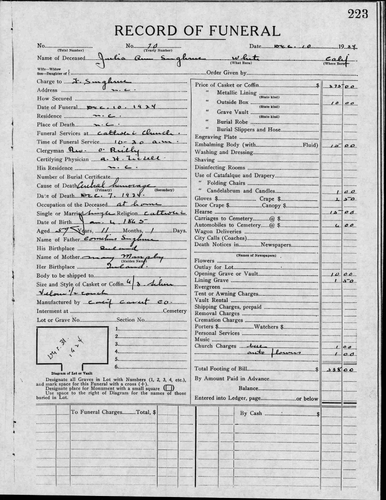 223
RECORD OF FUNERAL
No. No. 70 Date Dec. 10 1924
(Total Number) (Yearly Number)
Name of Deceased Julia Ann White Calif
(What Race) (Where Born)
Wife—Widow
Son—Daughter of
Order Given by
Charge to
Address N.C.
How Secured
Date of Funeral Dec. 10, 1924
Residence N.C.
Place of Death N.C.
Funeral Services at Catholic Church
Time of Service 10:30 a.m.
Clergyman Rev. O'Reilly
Certifying Physician
His Residence N.C.
Number of Burial Certificate
Cause of Death
(Primary) (Secondary)
Date of Death Dec. 7, 1924
Occupation of the Deceased at home
Single or Married Single Religion Catholic
Date of Birth Jan. 6, 1865
Aged 59 Years, 11 Months, 1 Days
Name of Father Cornelius
His Birthplace Ireland
Name of Mother Mary Murphy
(Maiden Name)
Her Birthplace Ireland
Body to be shipped to
Size and Style of Casket or Coffin
Manufactured by Calif Casket Co.
Interment at Cemetery
Lot or Grave No. Section No.
Diagram of Lot or Vault
1
2
3
4
Designate all Graves in Lot with Numbers (1, 2, 3, 4, etc.), and mark space for this Funeral with a cross (+).
Designate place for Monument with a small square
Use space to right of Diagram for the names of those buried in Lot.
Price of Casket or Coffin
" Metallic Lining
(State Kind)
" Outside Box 10 00
(State Kind)
" Grave Vault
(State Kind)
" Burial Robe
(State Kind)
" Burial Slippers and Hose
Engraving Plate
Embalming Body (with Fluid) 10 00
Washing and Dressing
Shaving
Disinfecting Rooms
Use of Catafalque and Drapery
" Folding Chairs
" Candelabrum and Candles 1 00
Gloves 2 50
Door Crape Canopy
Hearse 12 50
Carriages to Cemetery @
Automobiles to Cemetery @ 6 00
Wagon Deliveries
City Calls (Coaches)
Death Notices in Newspapers
(Names of Newspapers)
Flowers
Outlay for Lot
Opening Grave or Vault 10 00
Lining Grave 1 50
Evergreens
Tent or Awning Charges
Vault Rental
Shipping Charges, prepaid
Removal Charges
Cremation Charges
Porters Watchers
Personal Services
Music
Church Charges 1 00
auto flowers 1 00
Total Footing of Bill
By Amount Paid in Advance
Balance
Entered into Ledger, page or below.
To Funeral Charges, Total, $ By Cash $